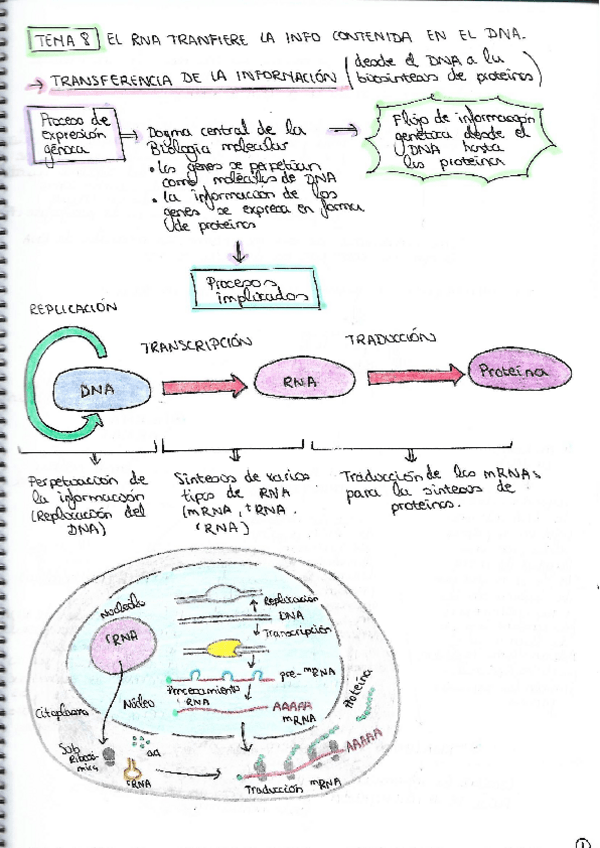 TEMA 8 EL RNA TRANFIERE LA INFO CONTENIDA EN EL DNA.
→ TRANSFERENCIA DE LA INFORMACIÓN (desde el DNA a la
biosíntesis de proteínas)
Proceso de
expresión
génica
Dogma central de la
Biología molecular
• los genes se perpetúan
como moléculas de DNA
• la información de los
genes se expresa en forma
de proteínas
Flujo de información
genética desde el
DNA hasta
las proteína
Procesos
implicados
REPLICACIÓN
TRANSCRIPCIÓN
TRADUCCIÓN
DNA
RNA
Proteína
Perpetuación de
la información
(Replicación del
DNA)
Síntesis de varios
tipos de RNA
(mRNA, tRNA,
rRNA)
Traducción de los mRNAs
para la síntesis de
proteínas.
Nucleólo
rRNA
Replicación
DNA
Transcripción
pre-mRNA
Procesamiento
RNA
AAAAA
mRNA
Núcleo
Citoplasma
Proteína
Sub
Ribosó-
mica
aa
tRNA
AAAAA
Traducción mRNA
1